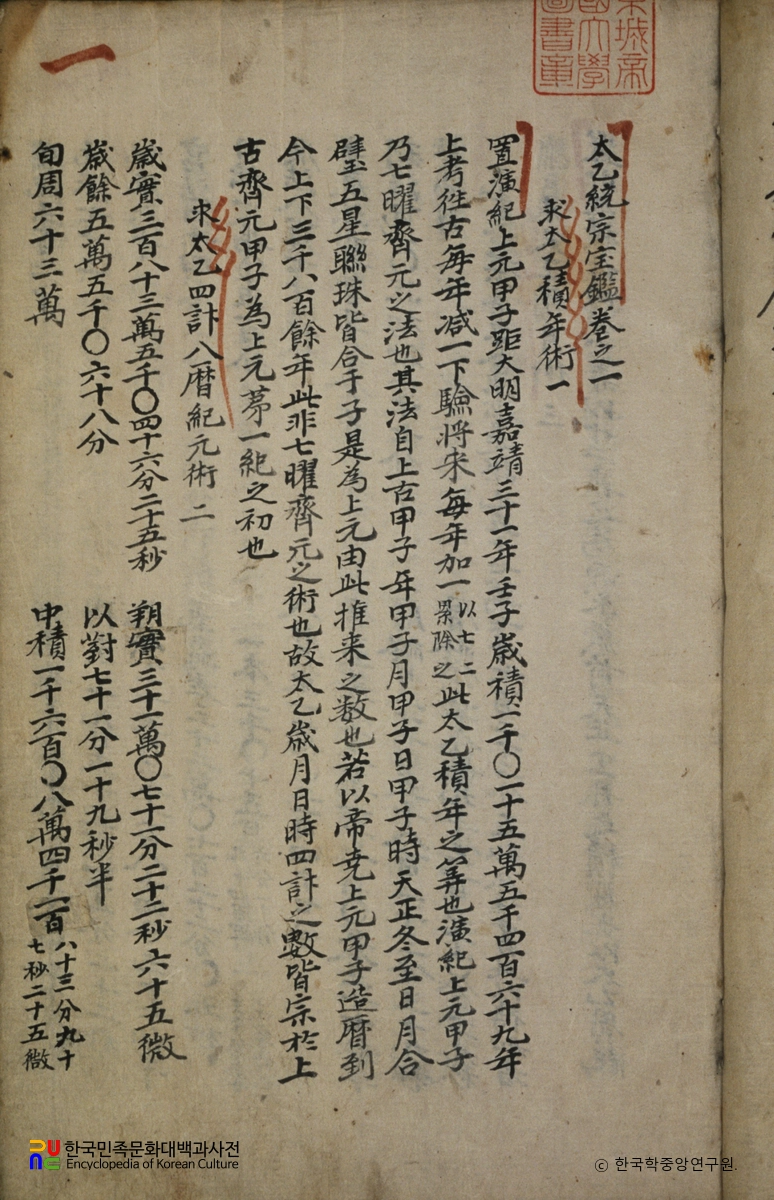 一
城帝
國大學
圖書章
太乙統宗宝鑑卷之一
求太乙積年術一
置演紀上元甲子距大明嘉靖三十一年壬子歲積一千〇一十五萬五千四百六十九年
上考往古每年減一下驗將來每年加一以七二累除之此太乙積年之筭也演紀上元甲子
乃七曜齊元之法也其法自上古甲子年甲子月甲子日甲子時天正冬至日月合
璧五星聯珠皆合于子是為上元由此推来之数也若以帝尭上元甲子造曆到
今上下三千八百餘年此非七曜齊元之術也故太乙歲月日時四計之數皆宗於上
古齊元甲子為上元苐一紀之初也
求太乙四計八曆紀元術二
歲實三百八十三萬五千〇四十六分二十五秒 朔實三十一萬〇七十一分二十二秒六十五微
歲餘五萬五千〇六十八分 以對七十一分一十九秒半
旬周六十三萬 中積一千六百〇八萬四千一百八十三分九十七秒二十五微
한국민족문화대백과사전
Encyclopedia of Korean Culture
© 한국학중앙연구원.